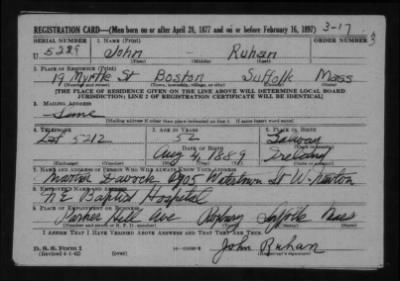 REGISTRATION CARD—(Men born on or after April 28, 1877 and on or before February 16, 1897) 3-17
SERIAL NUMBER 1. NAME (Print) ORDER NUMBER
U 5289 John - Ruhan
(First) (Middle) (Last)
2. PLACE OF RESIDENCE (Print)
19 Myrtle St Boston Suffolk Mass
(Number and street) (Town, township, village, or city) (County) (State)
[THE PLACE OF RESIDENCE GIVEN ON THE LINE ABOVE WILL DETERMINE LOCAL BOARD
JURISDICTION; LINE 2 OF REGISTRATION CERTIFICATE WILL BE IDENTICAL]
3. MAILING ADDRESS
Same
(Mailing address if other than place indicated on line 2. If same insert word same)
4. TELEPHONE 5. AGE IN YEARS 6. PLACE OF BIRTH
5212 52 Galway
DATE OF BIRTH (Town or county)
Aug 4, 1889 Ireland
(Exchange) (Number) (Mo.) (Day) (Yr.) (State or country)
7. NAME AND ADDRESS OF PERSON WHO WILL ALWAYS KNOW YOUR ADDRESS
Martin Watertown St W. Newton
8. EMPLOYER'S NAME AND ADDRESS
N E Baptist Hospital
9. PLACE OF EMPLOYMENT OR BUSINESS
Parker Hill Ave Roxbury Suffolk Mass
(Number and street or R. F. D. number) (Town) (County) (State)
I AFFIRM THAT I HAVE VERIFIED ABOVE ANSWERS AND THAT THEY ARE TRUE.
D. S. S. Form 1 John Ruhan
(Revised 4-1-42) (over) (Registrant's signature)